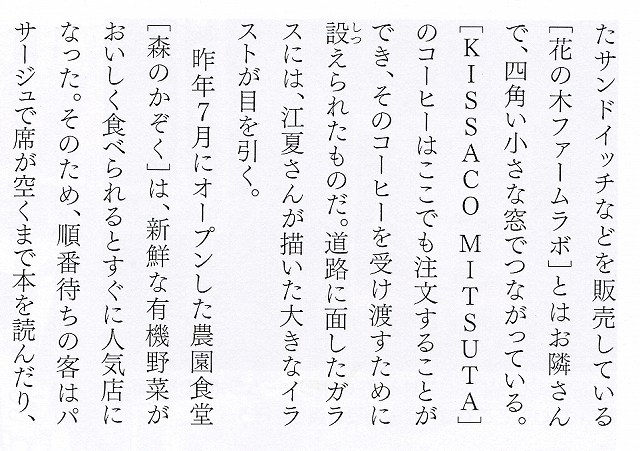 たサンドイッチなどを販売している
［花の木ファームラボ］とはお隣さん
で、四角い小さな窓でつながっている。
［KISSACO MITSUTA］
のコーヒーはここでも注文することが
でき、そのコーヒーを受け渡すために
設えられたものだ。道路に面したガラ
しつ
スには、江夏さんが描いた大きなイラ
ストが目を引く。
昨年7月にオープンした農園食堂
［森のかぞく］は、新鮮な有機野菜が
おいしく食べられるとすぐに人気店に
なった。そのため、順番待ちの客はパ
サージュで席が空くまで本を読んだり、